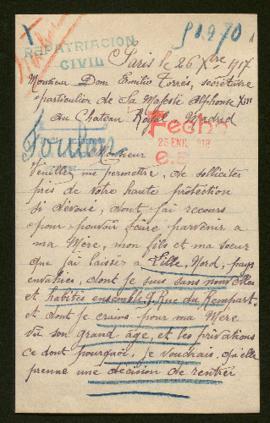 98970
REPATRIACION
CIVIL
Paris le 26 Xbre 1917
Monsieur Dom Emilio Torrès, secrétaire
particulier de Sa Majesté Alphonse XIII
au Chateau Royal, Madrid
Fecha
Monsieur
Veuillez me permettre, de solliciter
près de votre haute protection
si dévoué, dont j'ai recours
pour pouvoir faire parvenir a
ma Mère, mon fils et ma Sœur
que j'ai laissé à Lille, Nord, pays
envahies, dont je suis sans nouvelles
et habités ensemble, Rue du Rempart
et dont je crains pour ma Mère
vu son grand âge, et les privations
ce dont pourquoi, je voudrais qu'elle
prenne une décision de rentrée